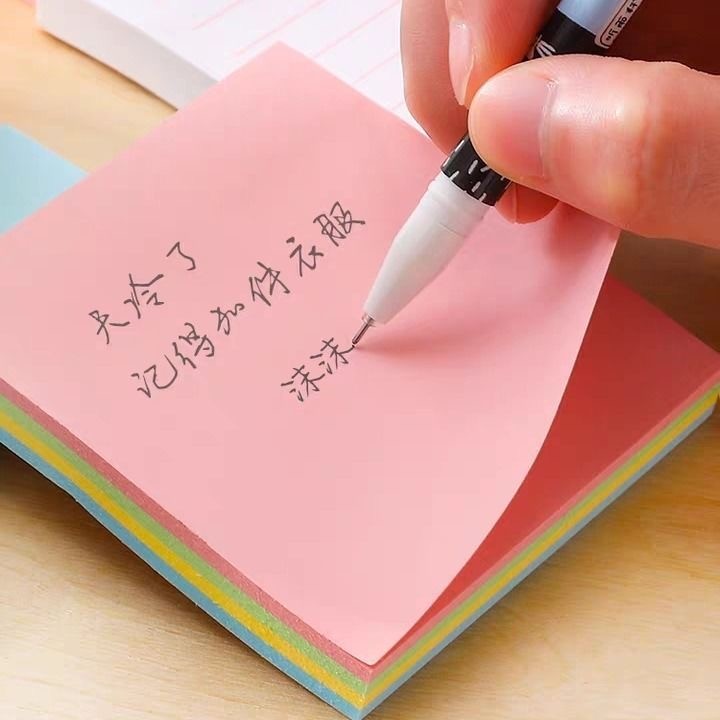 天冷了
记得加件衣服
沫沫